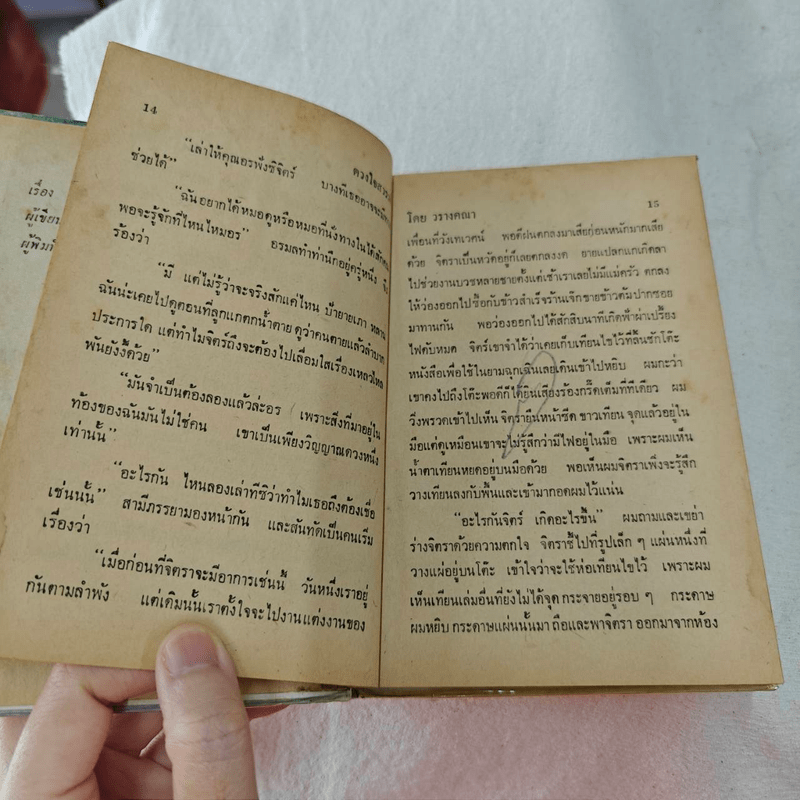 เรื่อง
14
"เล่าให้คุณอรฟังซิจิตร์ บางทีเธออาจจะ
ช่วยได้"
"ฉันอยากได้หมอดูหรือหมอที่นั่งทางในได้สัก
พอจะรู้จักที่ไหนไหมอร" อรมลทำท่านึกอยู่ครู่หนึ่ง
ร้องว่า
"มี แต่ไม่รู้ว่าจะจริงสักแค่ไหน ป้ายายเภา หลาน
ฉันน่ะเคยไปดูตอนที่ลูกแกตกน้ำตาย ดูว่าคนตายแล้วลำบาก
ประการใด แต่ทำไมจิตร์ถึงจะต้องไปเลื่อมใสเรื่องเหลวไหล
พันยังงี้ด้วย"
"มันจำเป็นต้องลองแล้วล่ะอร เพราะสิ่งที่มาอยู่ใน
ท้องของฉันมันไม่ใช่คน เขาเป็นเพียงวิญญาณดวงหนึ่ง
เท่านั้น"
"อะไรกัน ไหนลองเล่าทีซิว่าทำไมเธอถึงต้องเชื่อ
เช่นนั้น" สามีภรรยามองหน้ากัน และสันทัดเป็นคนเริ่ม
เรื่องว่า
"เมื่อก่อนที่จิตราจะมีอาการเช่นนี้ วันหนึ่งเราอยู่
กันตามลำพัง แต่เดิมนั้นเราตั้งใจจะไปงานแต่งงานของ
โดย วรางคณา 15
เพื่อนที่วังเทเวศน์ พอดีฝนตกลงมาเสียก่อนหนักมากเสีย
ด้วย จิตราเป็นหวัดอยู่ก็เลยตกลงงด ยายแปลกแกเกิดลา
ไปช่วยงานบวชหลายชายตั้งแต่เช้าเราเลยไม่มีแม่ครัว ตกลง
ให้ว่องออกไปซื้อกับข้าวสำเร็จร้านเจ๊กขายข้าวต้มปากซอย
มาทานกัน พอว่องออกไปได้สักสิบนาทีเกิดฟ้าผ่าเปรี้ยง
ไฟดับหมด จิตร์เขาจำได้ว่าเคยเก็บเทียนไขไว้ที่ลิ้นชักโต๊ะ
หนังสือเพื่อใช้ในยามฉุกเฉินเลยเดินเข้าไปหยิบ ผมกะว่า
เขาคงไปถึงโต๊ะพอดีก็ได้ยินเสียงร้องกรี๊ดเต็มที่ทีเดียว ผม
วิ่งพรวดเข้าไปเห็น จิตรายืนหน้าซีด ขาวเทียน จุดแล้วอยู่ใน
มือแต่ดูเหมือนเขาจะไม่รู้สึกว่ามีไฟอยู่ในมือ เพราะผมเห็น
น้ำตาเทียนหยดอยู่บนมือด้วย พอเห็นผมจิตราเพิ่งจะรู้สึก
วางเทียนลงกับพื้นและเข้ามากอดผมไว้แน่น
"อะไรกันจิตร์ เกิดอะไรขึ้น" ผมถามและเขย่า
ร่างจิตราด้วยความตกใจ จิตราชี้ไปที่รูปเล็ก ๆ แผ่นหนึ่งที่
วางแผ่อยู่บนโต๊ะ เข้าใจว่าจะใช้ห่อเทียนไขไว้ เพราะผม
เห็นเทียนเล่มอื่นที่ยังไม่ได้จุด กระจายอยู่รอบ ๆ กระดาษ
ผมหยิบ กระดาษแผ่นนั้นมา ถือและพาจิตรา ออกมาจากห้อง